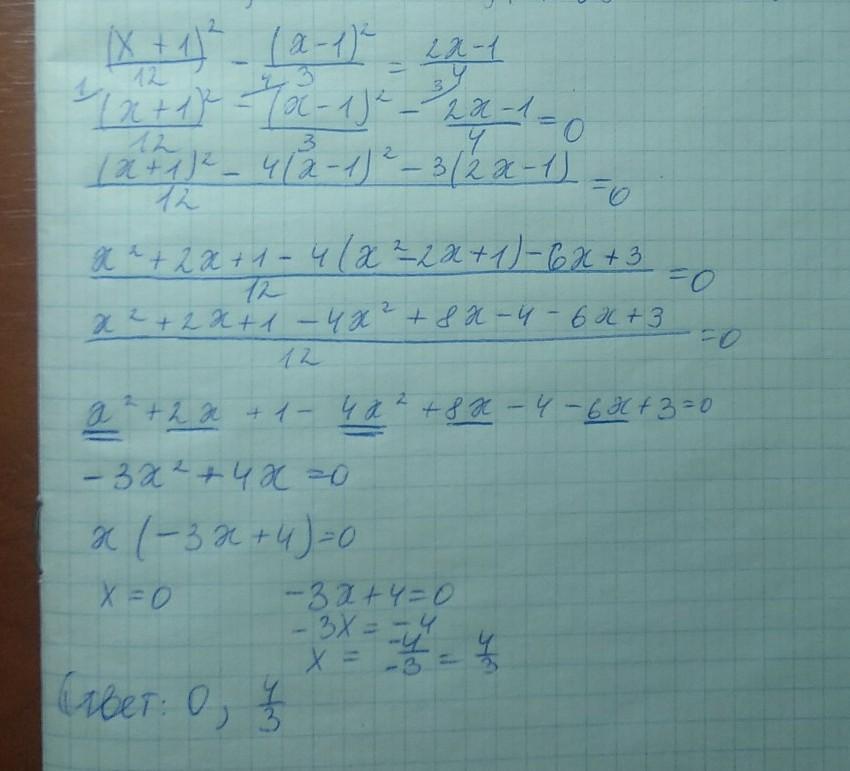 (x+1)²/12 - (x-1)²/3 = (2x-1)/4
1 (x+1)²/12 - 4 (x-1)²/3 - 3 (2x-1)/4 = 0
((x+1)² - 4(x-1)² - 3(2x-1))/12 = 0
(x² + 2x + 1 - 4(x² - 2x + 1) - 6x + 3)/12 = 0
(x² + 2x + 1 - 4x² + 8x - 4 - 6x + 3)/12 = 0
x² + 2x + 1 - 4x² + 8x - 4 - 6x + 3 = 0
-3x² + 4x = 0
x(-3x + 4) = 0
x = 0 -3x + 4 = 0
-3x = -4
x = -4/-3 = 4/3
Ответ: 0, 4/3